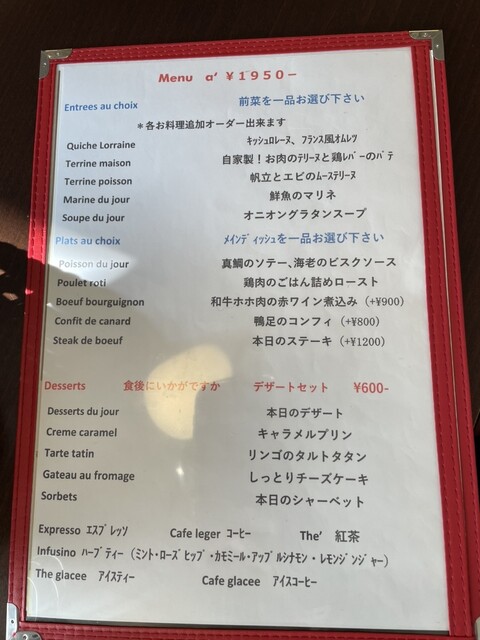 Menu a' ¥1950-
Entrees au choix 前菜を一品お選び下さい
＊各お料理追加オーダー出来ます
Quiche Lorraine ｷｯｼｭﾛﾚｰﾇ、ﾌﾗﾝｽ風ｵﾑﾚﾂ
Terrine maison 自家製！お肉のﾃﾘｰﾇと鶏ﾚﾊﾞｰのﾊﾟﾃ
Terrine poisson 帆立とエビのﾑｰｽﾃﾘｰﾇ
Marine du jour 鮮魚のマリネ
Soupe du jour オニオングラタンスープ
Plats au choix ﾒｲﾝﾃﾞｨｯｼｭを一品お選び下さい
Poisson du jour 真鯛のソテー､海老のビスクソース
Poulet roti 鶏肉のごはん詰めロースト
Boeuf bourguignon 和牛ホホ肉の赤ワイン煮込み（+¥900）
Confit de canard 鴨足のコンフィ（+¥800）
Steak de boeuf 本日のステーキ（+¥1200）
Desserts 食後にいかがですか デザートセット ¥600-
Desserts du jour 本日のデザート
Creme caramel キャラメルプリン
Tarte tatin リンゴのタルトタタン
Gateau au fromage しっとりチーズケーキ
Sorbets 本日のシャーベット
Expresso ｴｽﾌﾟﾚｯｿ Cafe leger ｺｰﾋｰ The' 紅茶
Infusino ﾊｰﾌﾞﾃｨｰ（ﾐﾝﾄ・ﾛｰｽﾞﾋｯﾌﾟ・ｶﾓﾐｰﾙ・ｱｯﾌﾟﾙｼﾅﾓﾝ・ﾚﾓﾝｼﾞﾝｼﾞｬｰ）
The glacee ｱｲｽﾃｨｰ Cafe glacee ｱｲｽｺｰﾋｰ